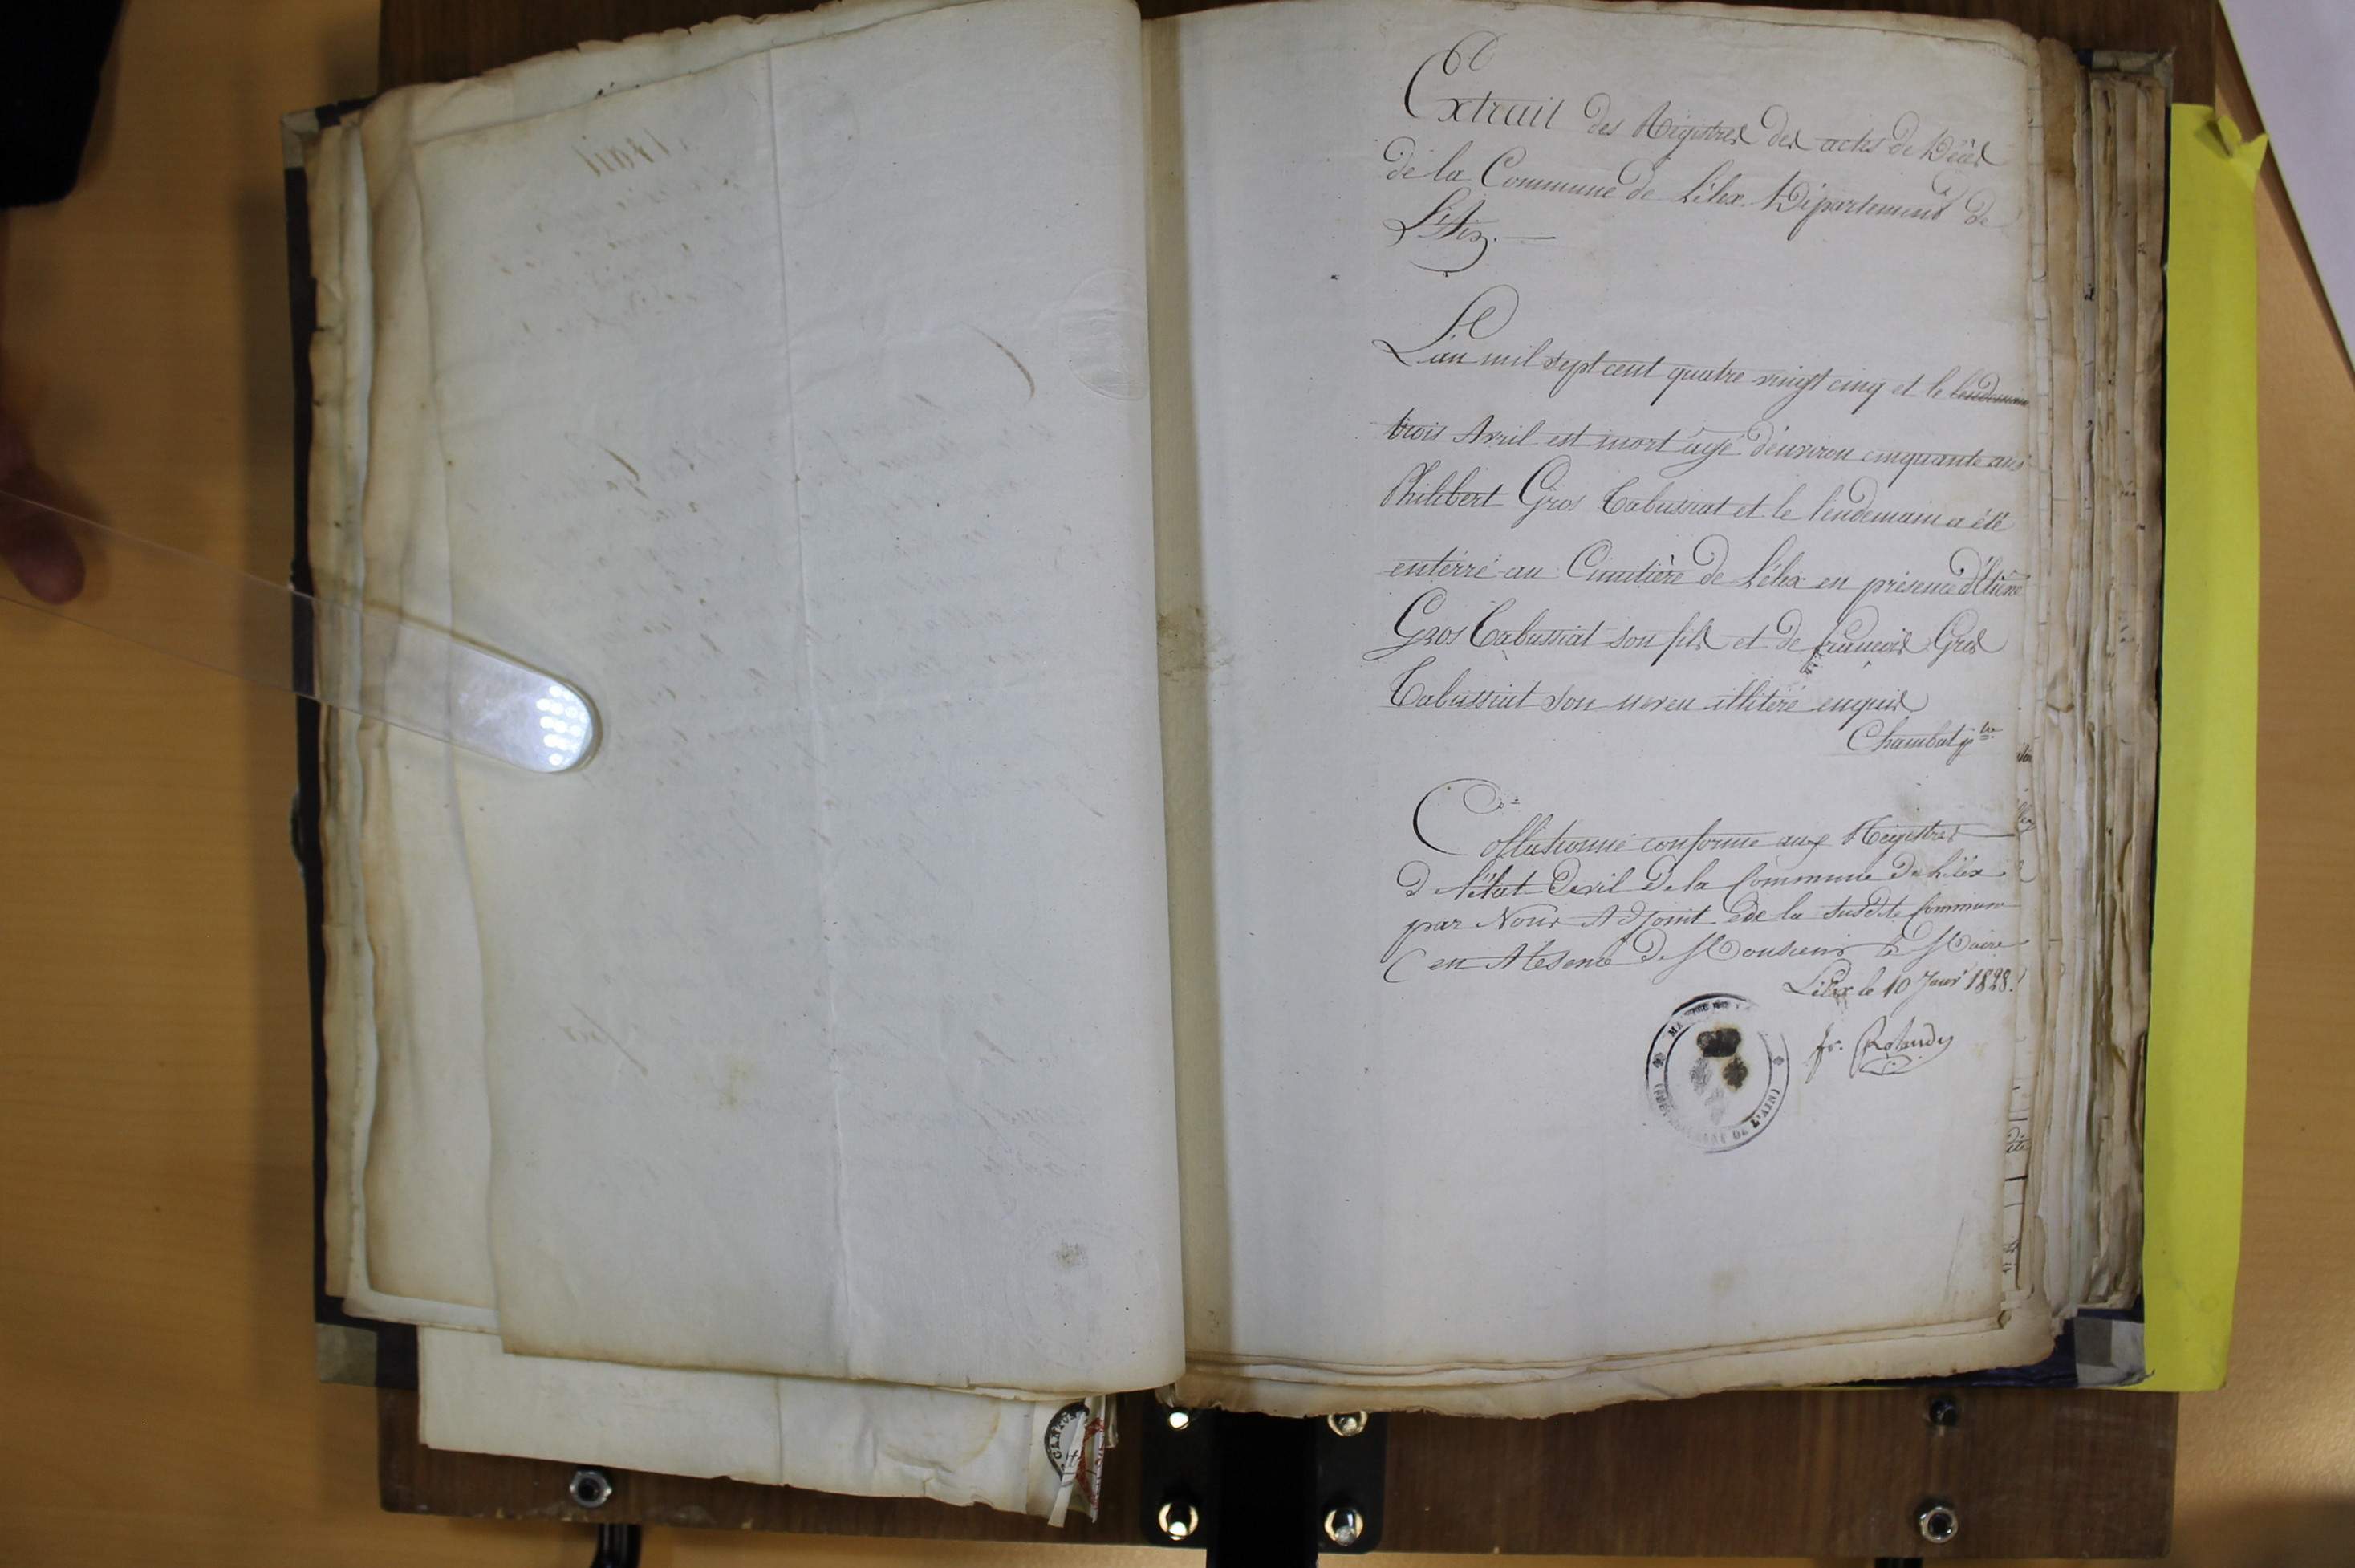 Extrait des Registres des actes de Décès
de la Commune de Lélex Département de
L'Ain. —
L'an mil sept cent quatre vingt cinq et le lendemain
trois Avril est mort agé d'environ cinquante ans
Philibert Gros Tabussiat et le lendemain a été
enterré au Cimitière de Lélex en présence d'Etiene
Gros Tabussiat son fils et de francois Gros
Tabussiat son neveu illitéré enquis
Chambat ptre
Collationné conforme aux Registres
de l'état Civil de la Commune de Lélex
par Nous Adjoint de la susdite Commune
en Absence de Monsieur le Maire
Lélex le 10 Janr 1828.
fr. Rolandy
MAIRIE DE
DE L'AIN)
CANTON